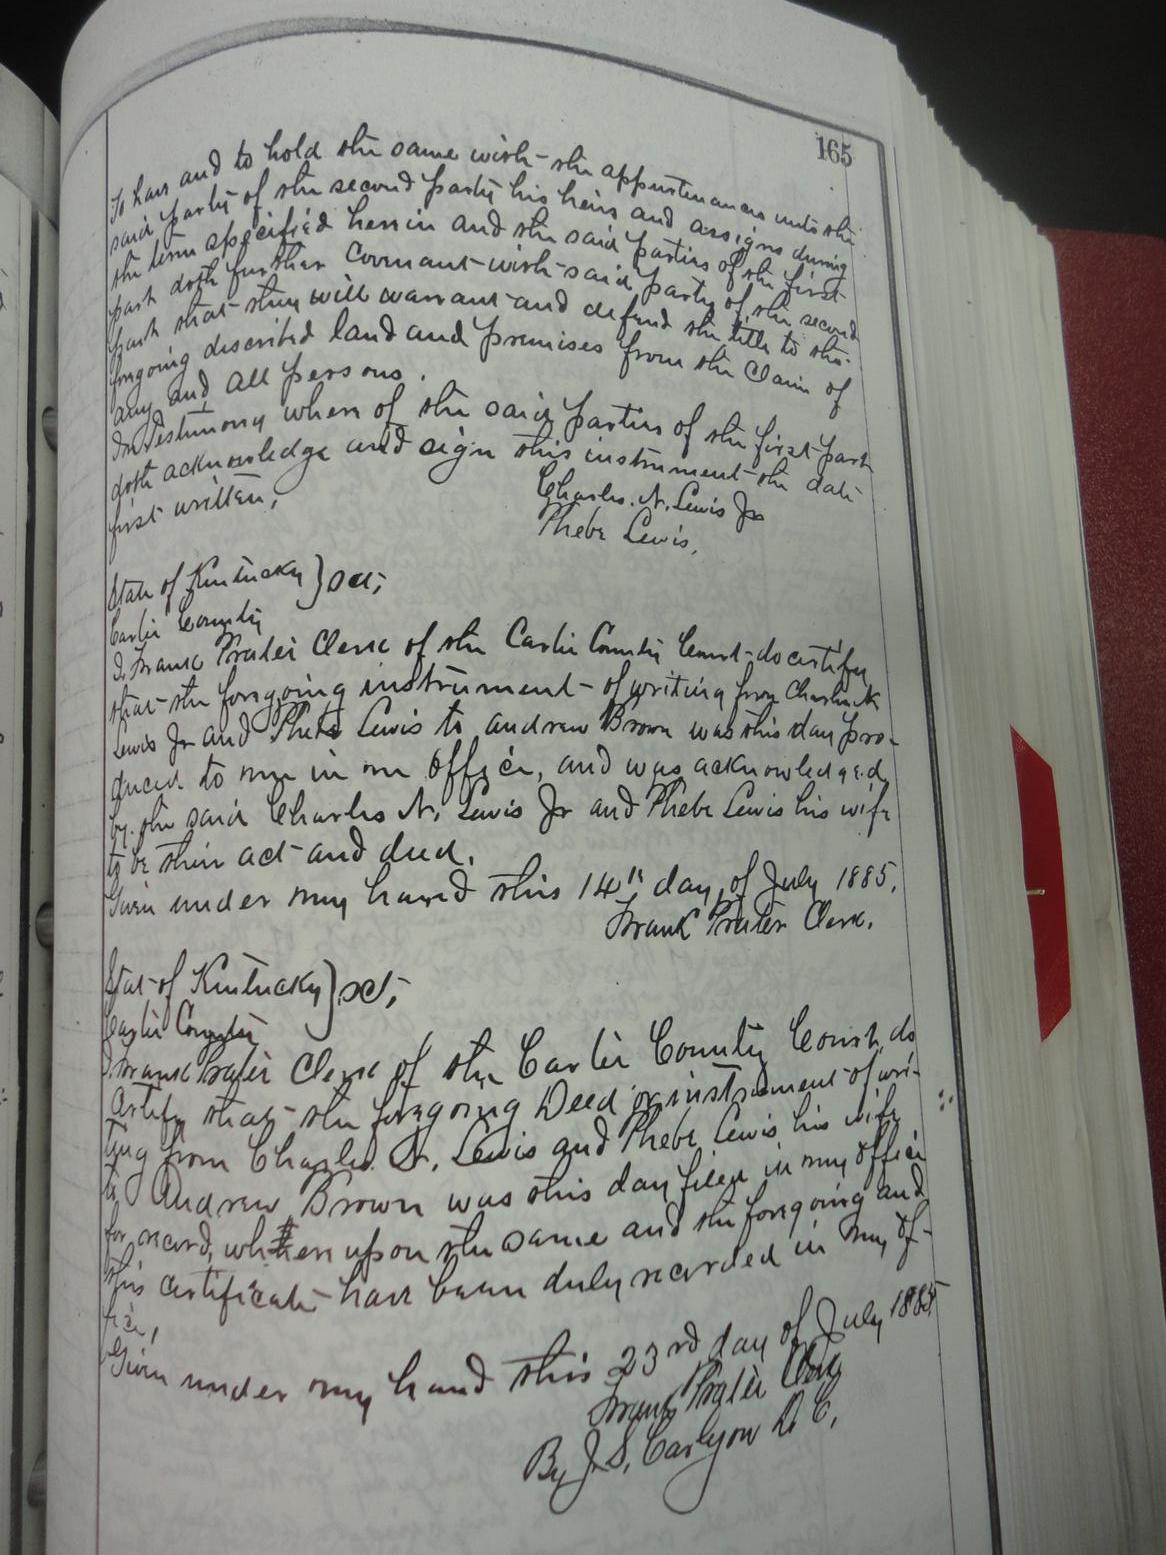 165
To have and to hold the same with the appurtenances unto the
said party of the second party his heirs and assigns during
the term specified herein and the said parties of the first
part doth further Covenant with said party of the second
part that they will warrant and defend the title to the
forgoing discribed land and premises from the claim of
any and all persons.
In Testimony where of the said parties of the first part
doth acknowledge and sign this instrument the date
first written;
Charles. N. Lewis Jr
Phebe Lewis.
State of Kentucky } sct;
Carter County
I, Frank Prater Clerk of the Carter County Court do certify
that the forgoing instrument of writing from Charles N
Lewis Jr and Phebe Lewis to andrew Brown was this day pro-
duced to me in my office, and was acknowledged
by the said Charles N. Lewis Jr and Phebe Lewis his wife
to be their act and deed.
Given under my hand this 14" day of July 1885.
Frank Prater Clerk.
Stat of Kentucky } sct;
Carter County
I, Frank Prater Clerk of the Carter County Court, do
certify that the foregoing Deed or instrument of wri-
ting from Charles N. Lewis and Phebe Lewis his wife
to Andrew Brown was this day filed in my office
for record, where upon the same and the foregoing and
this certificate have been duly recorded in my of-
fice,
Given under my hand this 23rd day of July 1885
Frank Prater Clerk
By J. S. Carlyon D. C.